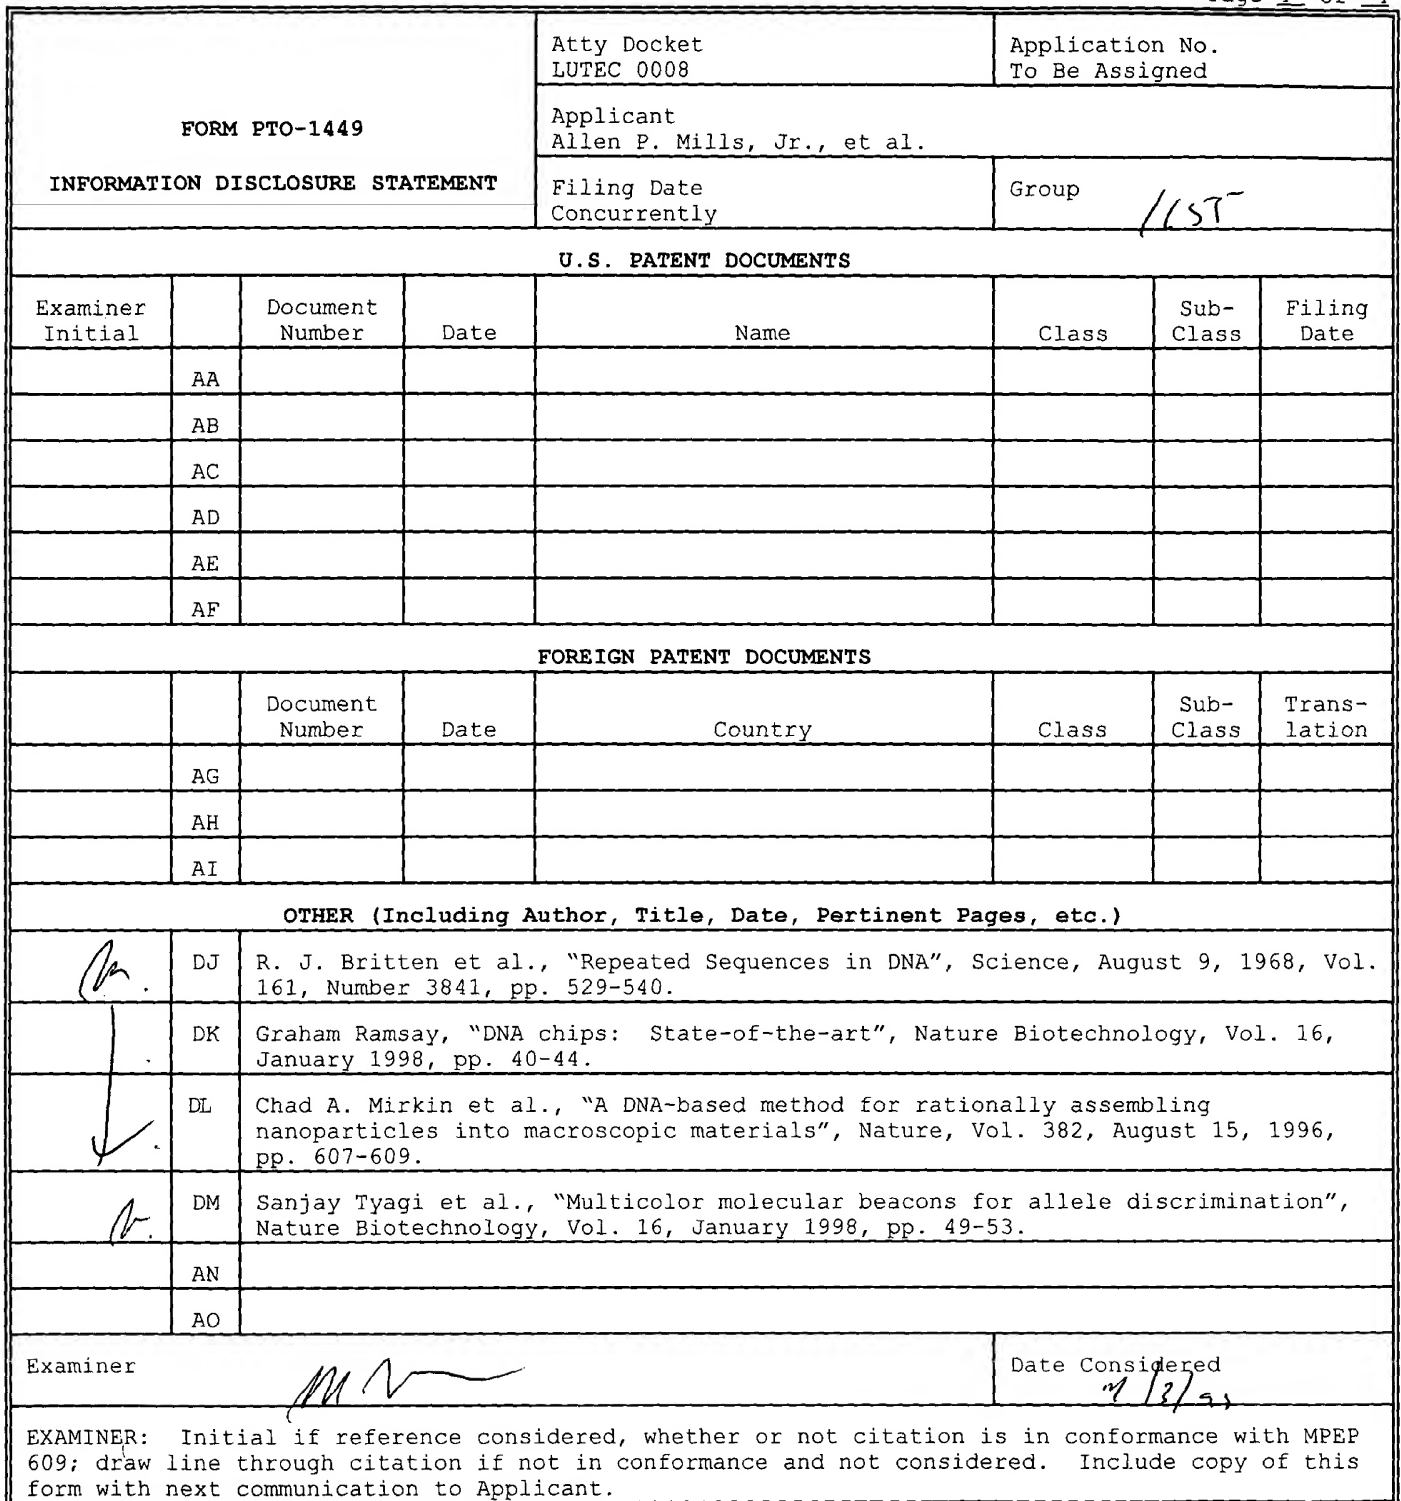 Atty Docket
LUTEC 0008
Application No.
To Be Assigned
FORM PTO-1449
INFORMATION DISCLOSURE STATEMENT
Applicant
Allen P. Mills, Jr., et al.
Filing Date
Concurrently
Group
U.S. PATENT DOCUMENTS
Examiner
Initial
Document
Number
Date
Name
Class
Sub-
Class
Filing
Date
AA
AB
AC
AD
AE
AF
FOREIGN PATENT DOCUMENTS
Document
Number
Date
Country
Class
Sub-
Class
Trans-
lation
AG
AH
AI
OTHER (Including Author, Title, Date, Pertinent Pages, etc.)
DJ
R. J. Britten et al., “Repeated Sequences in DNA”, Science, August 9, 1968, Vol.
161, Number 3841, pp. 529-540.
DK
Graham Ramsay, “DNA chips: State-of-the-art”, Nature Biotechnology, Vol. 16,
January 1998, pp. 40-44.
DL
Chad A. Mirkin et al., “A DNA-based method for rationally assembling
nanoparticles into macroscopic materials”, Nature, Vol. 382, August 15, 1996,
pp. 607-609.
DM
Sanjay Tyagi et al., “Multicolor molecular beacons for allele discrimination”,
Nature Biotechnology, Vol. 16, January 1998, pp. 49-53.
AN
AO
Examiner
Date Considered
EXAMINER: Initial if reference considered, whether or not citation is in conformance with MPEP
609; draw line through citation if not in conformance and not considered. Include copy of this
form with next communication to Applicant.